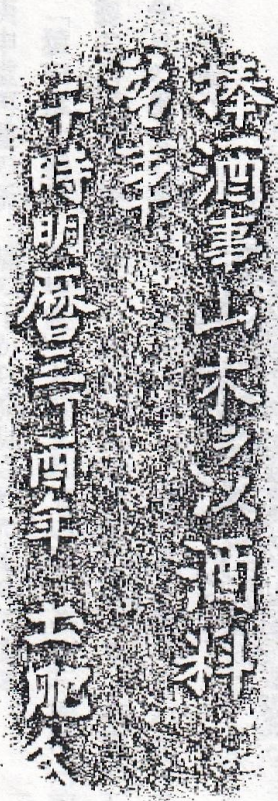 捧酒事山木ヲ以酒料
事
干時明暦三丁酉年 土肥氏